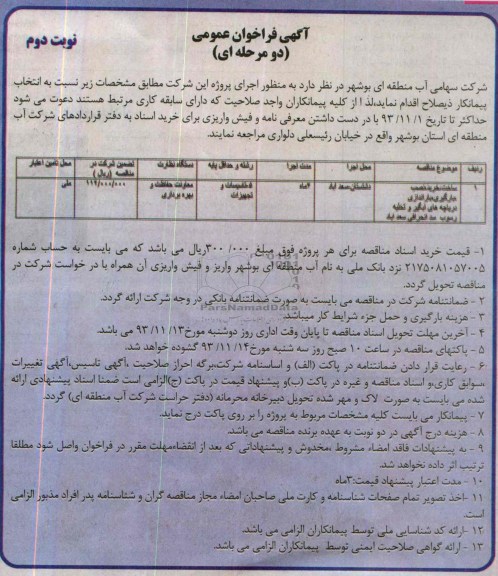 آگهی فراخوان عمومی
(دو مرحله ای)
نوبت دوم
شرکت سهامی آب منطقه ای بوشهر در نظر دارد به منظور اجرای پروژه این شرکت مطابق مشخصات زیر نسبت به انتخاب
پیمانکار ذیصلاح اقدام نماید،لذا از کلیه پیمانکاران واجد صلاحیت که دارای سابقه کاری مرتبط هستند دعوت می شود
حداکثر تا تاریخ ۹۳/۱۱/۱ با در دست داشتن معرفی نامه و فیش واریزی برای خرید اسناد به دفتر قراردادهای شرکت آب
منطقه ای استان بوشهر واقع در خیابان رئیسعلی دلواری مراجعه نمایند.
ردیف موضوع مناقصه محل اجرا مدت اجرا رشته و حداقل پایه دستگاه نظارت تضمین شرکت در مناقصه (ریال) محل تامین اعتبار
۱ ساخت،خرید،نصب دشتستان،سعد آباد ۴ماه ۵تاسیسات و معاونت حفاظت و ملی
بارگیری،باراندازی تجهیزات بهره برداری
دریچه های آبگیر و تخلیه
رسوب سد انحرافی سعد آباد
۱- قیمت خرید اسناد مناقصه برای هر پروژه فوق مبلغ ۳۰۰/۰۰۰ریال می باشد که می بایست به حساب شماره
۲۱۷۵۰۸۱۰۵۷۰۰۵ نزد بانک ملی به نام آب منطقه ای بوشهر واریز و فیش واریزی آن همراه با در خواست شرکت در
مناقصه تحویل گردد.
۲- ضمانتنامه شرکت در مناقصه می بایست به صورت ضمانتنامه بانکی در وجه شرکت ارائه گردد.
۳- هزینه بارگیری و حمل جزء شرایط کار میباشد.
۴- آخرین مهلت تحویل اسناد مناقصه تا پایان وقت اداری روز دوشنبه مورخ۹۳/۱۱/۱۳ می باشد.
۵- پاکتهای مناقصه در ساعت ۱۰ صبح روز سه شنبه مورخ۹۳/۱۱/۱۴ گشوده خواهد شد.
۶- رعایت قرار دادن ضمانتنامه در پاکت (الف) و اساسنامه شرکت،برگه احراز صلاحیت ،آگهی تاسیس،آگهی تغییرات
،سوابق کاری،و اسناد مناقصه و غیره در پاکت (ب)و پیشنهاد قیمت در پاکت (ج)الزامی است ضمنا اسناد پیشنهادی ارائه
شده می بایست به صورت لاک و مهر شده تحویل دبیرخانه محرمانه (دفتر حراست شرکت آب منطقه ای) گردد.
۷- پیمانکار می بایست کلیه مشخصات مربوط به پروژه را بر روی پاکت درج نماید.
۸- هزینه درج آگهی در دو نوبت به عهده برنده مناقصه می باشد.
۹- به پیشنهادات فاقد امضاء مشروط ،مخدوش و پیشنهاداتی که بعد از انقضاءمهلت مقرر در فراخوان واصل شود مطلقا
ترتیب اثر داده نخواهد شد.
۱۰- مدت اعتبار پیشنهاد قیمت:۳ماه
۱۱-اخذ تصویر تمام صفحات شناسنامه و کارت ملی صاحبان امضاء مجاز مناقصه گران و شناسنامه پدر افراد مذبور الزامی
است.
۱۲-ارائه کد شناسایی ملی توسط پیمانکاران الزامی می باشد.
۱۳- ارائه گواهی صلاحیت ایمنی توسط پیمانکاران الزامی می باشد.
ParsNamadData